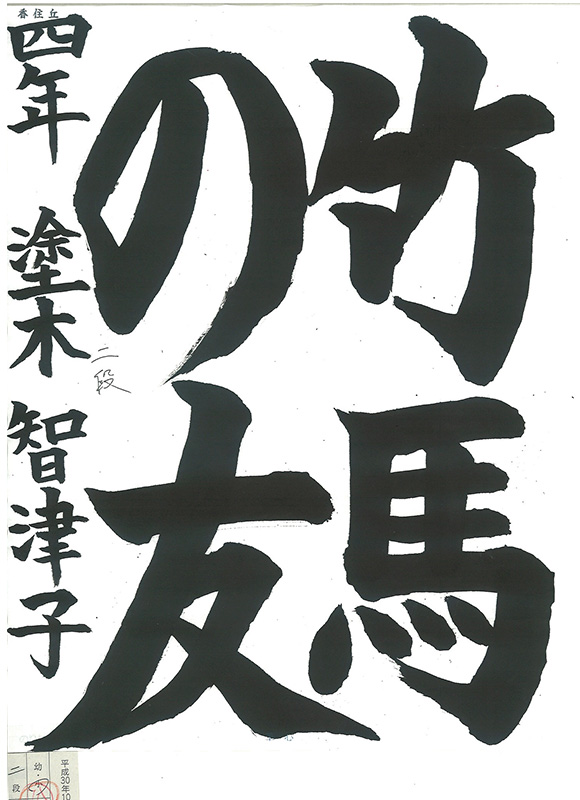 香住丘
竹馬
の友
四年 塗木 智津子
二段
平成30年10
幼・
二段